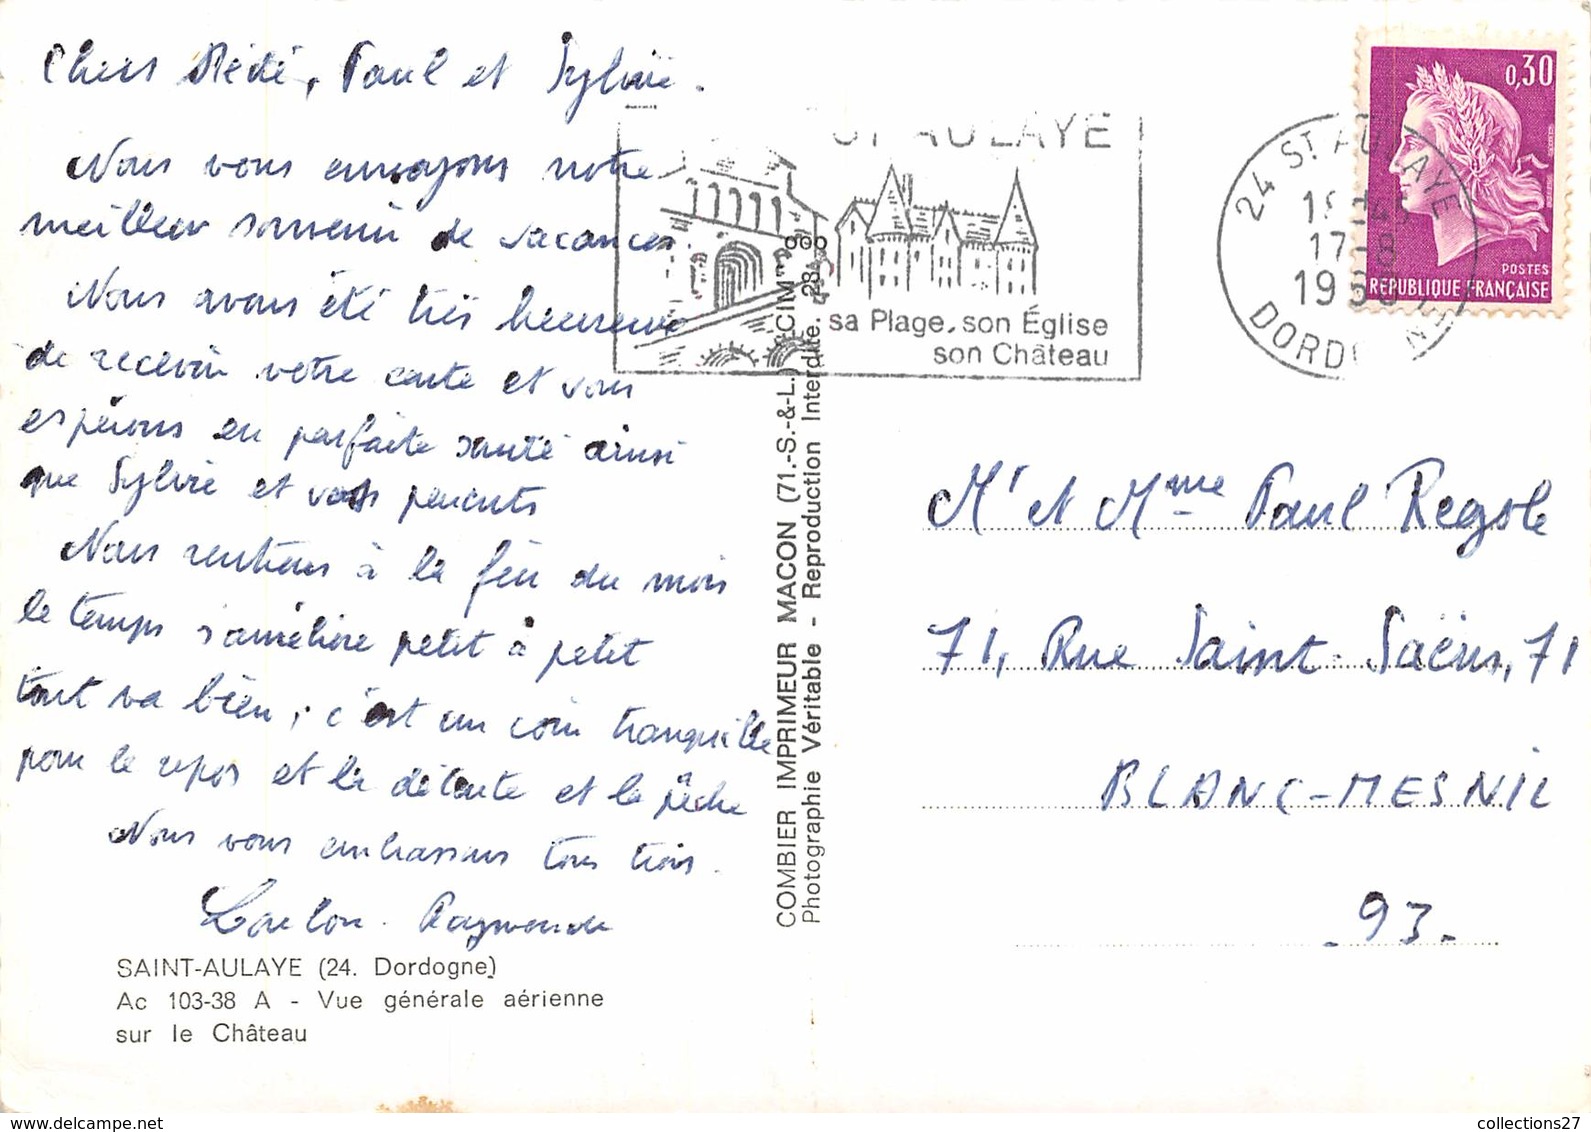 Chers Dédé, Paul et Sylvie.
Nous vous envoyons notre
meilleur souvenir de vacances.
Nous avons été très heureux
de recevoir votre carte et vous
espérons en parfaite santé ainsi
que Sylvie et vos parents
Nous rentrons à la fin du mois
le temps s'améliore petit à petit
tout va bien, c'est un coin tranquille
pour le repos et la détente et la pêche
Nous vous embrassons tous trois.
Loulou. Raymonde
SAINT-AULAYE (24. Dordogne)
Ac 103-38 A - Vue générale aérienne
sur le Château
COMBIER IMPRIMEUR MACON (71.-S.-&-L.) "CIM"
Photographie Véritable - Reproduction Interdite.
ST AULAYE
sa Plage, son Église
son Château
24 ST AULAYE
17-8
DORDOGNE
0,30
POSTES
REPUBLIQUE FRANÇAISE
Mr et Mme Paul Regole
71, Rue Saint-Saëns, 71
BLANC-MESNIL
- 93 -
collections27